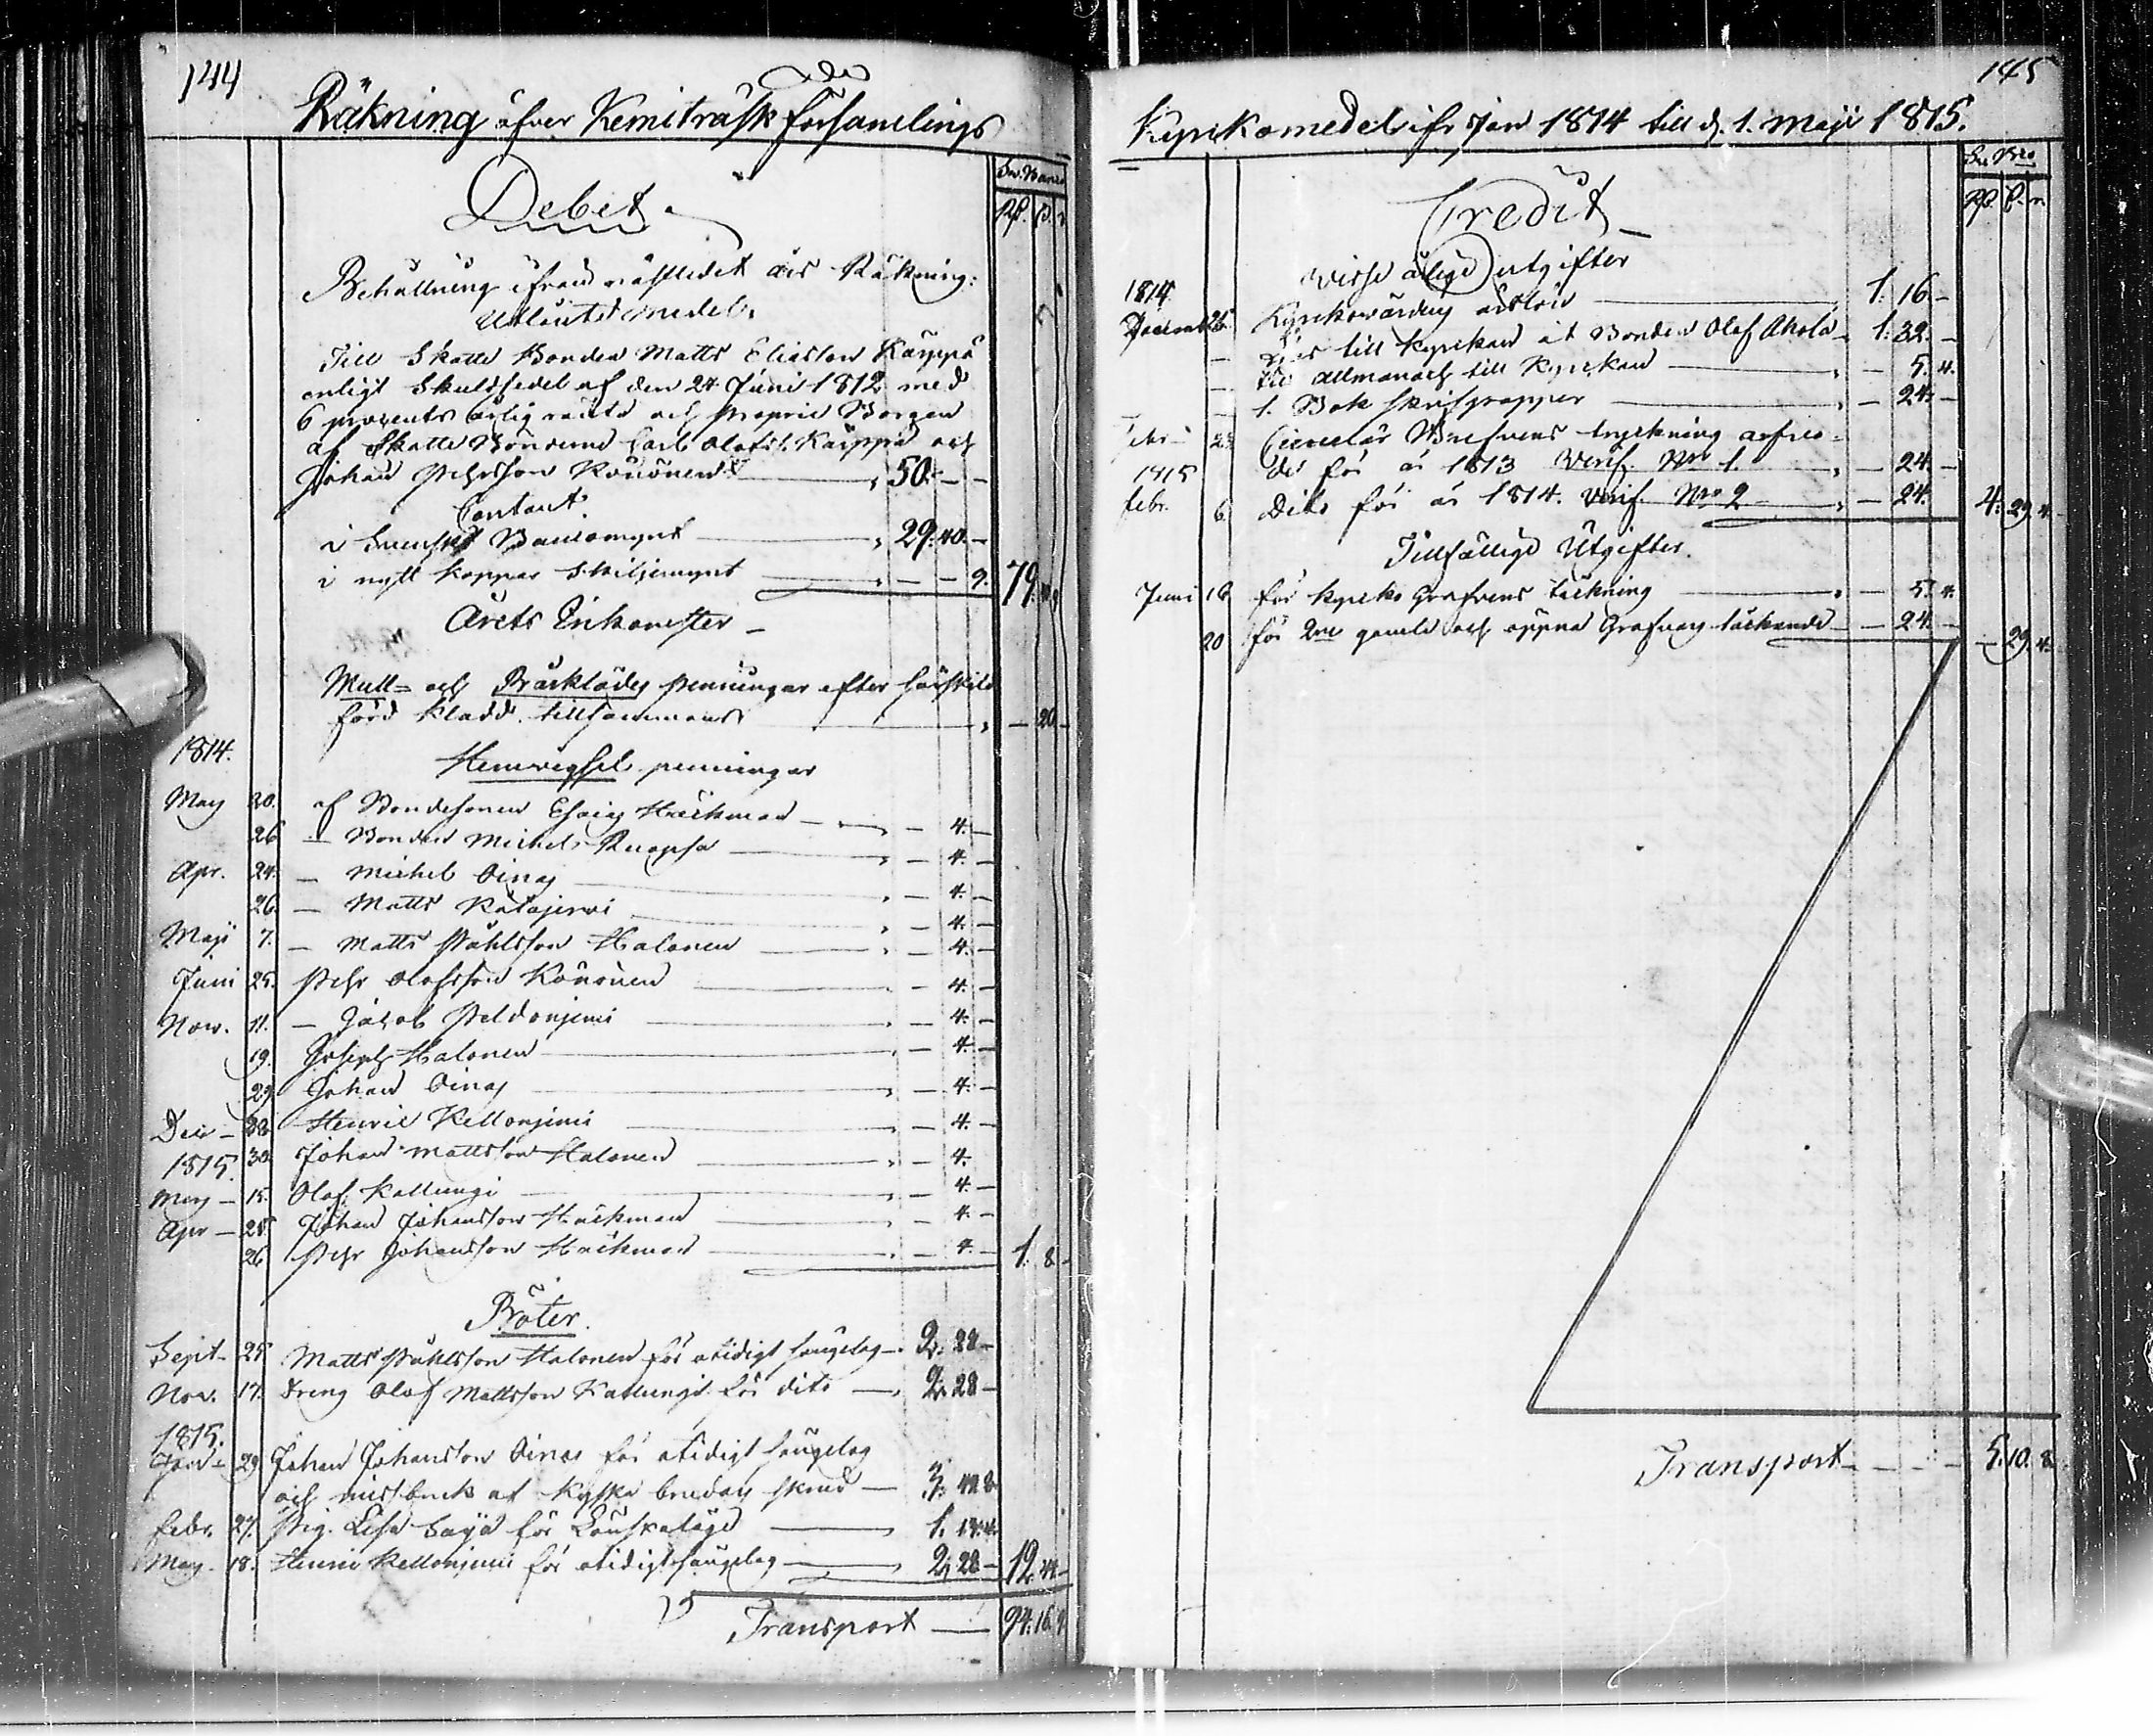 144
Räkning öfver Kemiträsk Församlings
Debet
Sv. Banco
Rd. s. r
Behållning ifrån nästledet års Räkning:
Utlånte medel.
Till Skatte Bonden Matts Eliasson Karppa
enligt Skuldsedel af den 24 Juni 1812 med
6 procents årlig ränta och proprie Borgen
af Skatte Bönderne Carl Olofss. Karppa och
Johan Pehrsson Kouonen 50. - -
Contant.
i Svenskt Bancomynt 29. 40. -
i nytt koppar Skiljemynt - - 9. 79.
Årets Inkomster
Mull- och Bårklädes penningar efter särskild
förd kladd tillsammans - 20 -
1814.
Hemvigsel penningar
May 20. af Bondesonen Esaias Hackman - 4. -
26 - Bonden Michel Ruopsa - 4. -
Apr. 24. - Michel Oinas - 4. -
26. - Matts Katajerwi - 4. -
Maji 7. - Matts Påhlsson Halonen - 4. -
Juni 25. Pehr Olofsson Kouonen - 4. -
Now. 11. - Jacob Peldonjemi - 4. -
19. Joseph Halonen - 4. -
29 Johan Oinas - 4. -
Dec - 28 Henric Kellonjemi - 4. -
30. Johan Mattsson Halonen - 4.
1815.
Mars - 15. Olof Kallungi - 4. -
Apr - 25. Johan Johansson Hackman - 4. -
26. Pehr Johansson Hackman - 4. - 1. 8 -
Böter.
Sept - 25. Matts Påhlsson Halonen för otidigt sängelag 2. 28 -
Nov. 17. Dreng Olof Mattsson Kallungi för dito 2. 28 -
1815.
Jan - 29 Johan Johansson Oinas för otidigt sängelag
och missbruk af kyska brudars skrud - 3.
Febr. 27. Pig. Lisa Saija för Lönskaläge 1.
Mars 18. Henric Kellonjemi för otidigt sängelag 2. 28 - 12. 44 -
Transport 94. 16. 9
145
Kyrkomedel ifr. 1 Jan 1814 till d. 1. Maji 1815.
Sv. Bco
Rd. s. r.
Credit
Visse årlige utgifter
1814
Decemb 26. Kyrkowärdens årslön 1. 16 -
- till kyrkan åt Bonden Olof Ahola 1. 32. -
- En Allmanach till Kyrkan - 5. 4.
- 1. Bok skrifpapper - 24. -
Febr - Circulär Brefvens tryckning arfvo-
1815 de för år 1813 Verif. No 1. - 24. -
Febr. 6 Dito för år 1814. Verif. No 2 - 24. 4. 29. 4.
Tillfällige Utgifter.
Juni 18 för kyrko Grafvens täckning - 5. 4.
20 för 2ne gamla och öppna Grafvars täckande - 24. - - 29. 4.
Transport 5. 10. 8